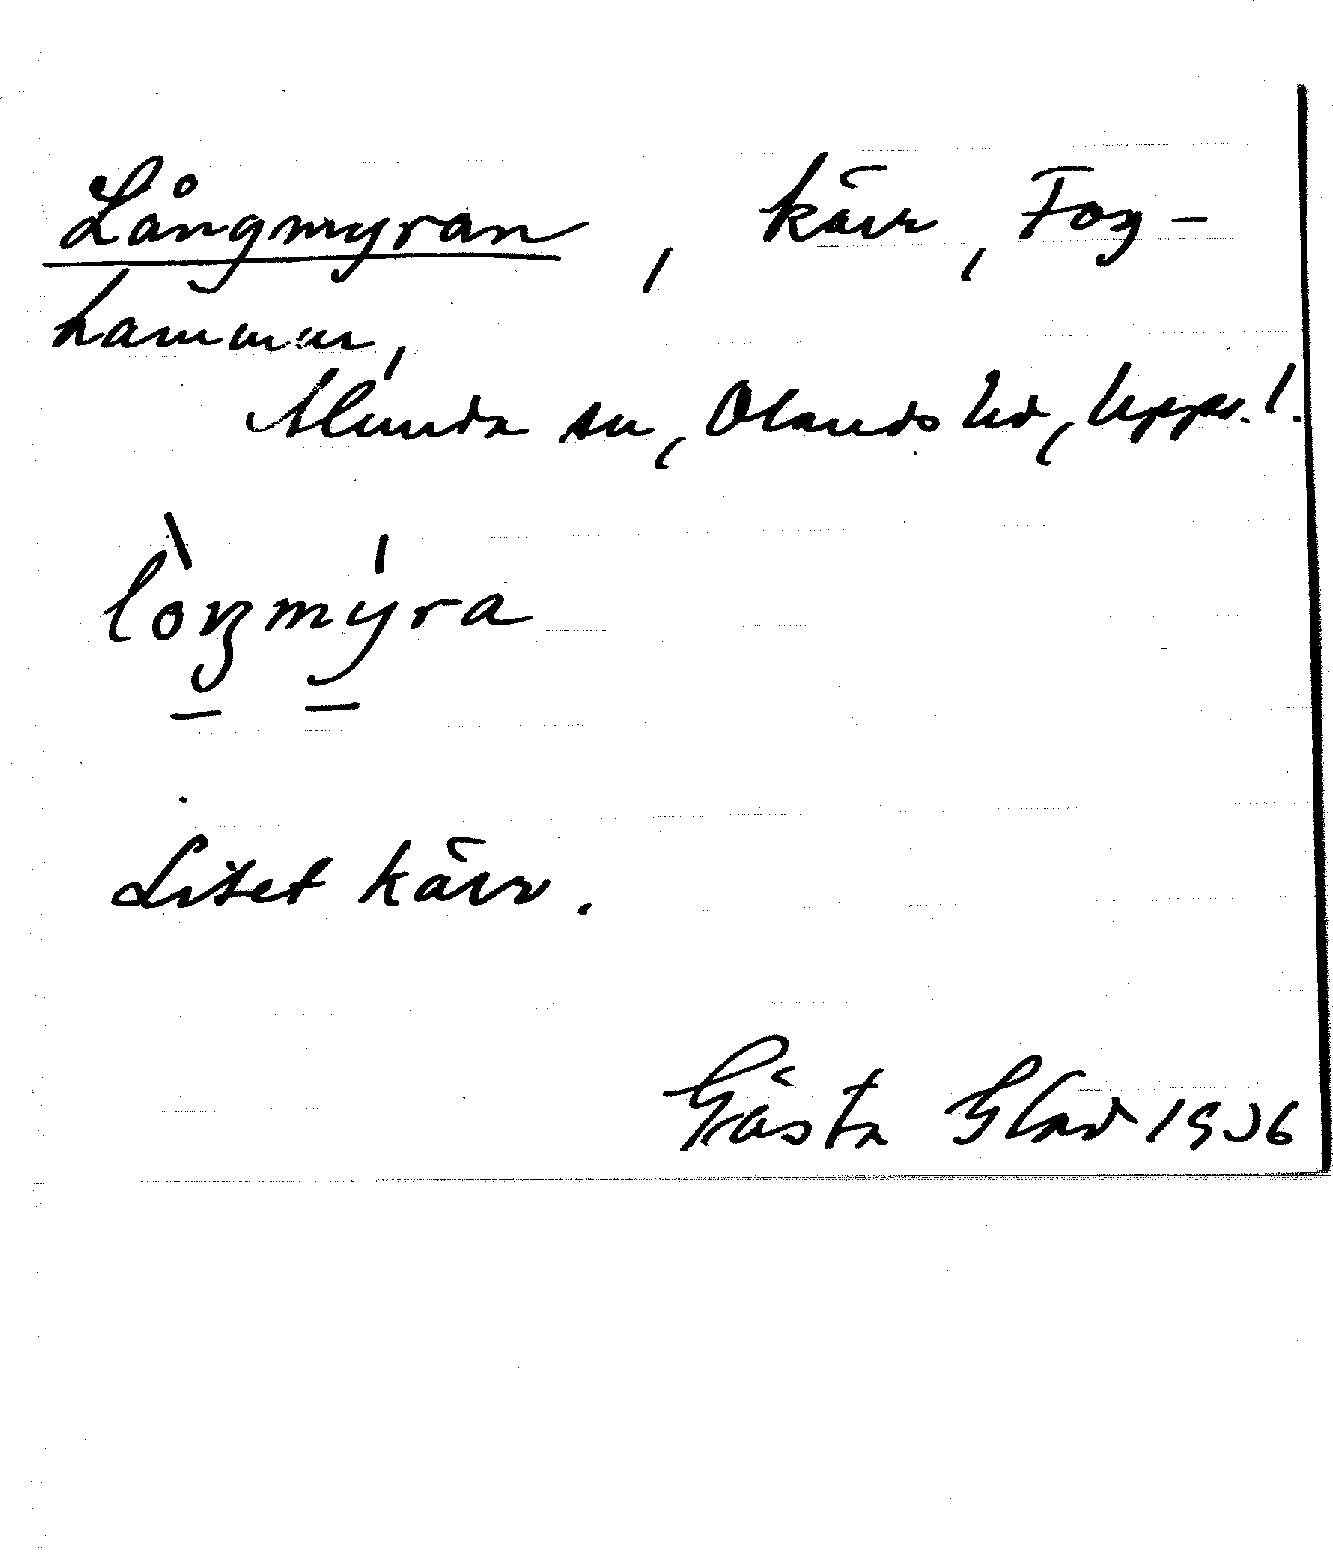 Långmyran, kärr, Foghammar,
Alunda sn, Olands hd, Upps. l.
lòŋmýra
Litet kärr.
Gösta Glad 1936